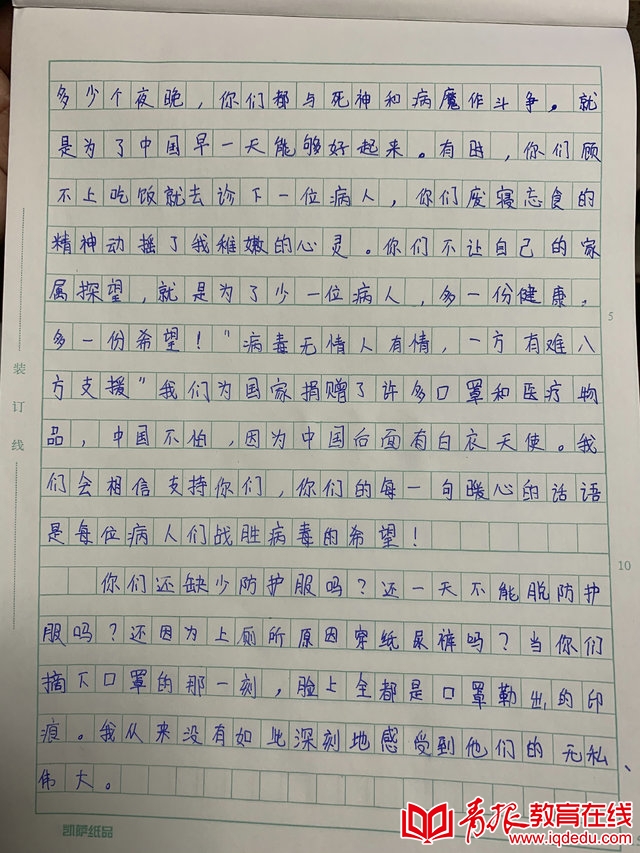 多少个夜晚，你们都与死神和病魔作斗争。就
是为了中国早一天能够好起来。有时，你们顾
不上吃饭就去诊下一位病人，你们废寝忘食的
精神动摇了我稚嫩的心灵。你们不让自己的家
属探望，就是为了少一位病人，多一份健康，
多一份希望！"病毒无情人有情，一方有难八
方支援"我们为国家捐赠了许多口罩和医疗物
品，中国不怕，因为中国后面有白衣天使。我
们会相信支持你们，你们的每一句暖心的话语
是每位病人们战胜病毒的希望！
你们还缺少防护服吗？还一天不能脱防护
服吗？还因为上厕所原因穿纸尿裤吗？当你们
摘下口罩的那一刻，脸上全都是口罩勒出的印
痕。我从来没有如此深刻地感受到他们的无私、
伟大。
装订线
5
10
凯萨纸品
青报教育在线
www.iqdedu.com